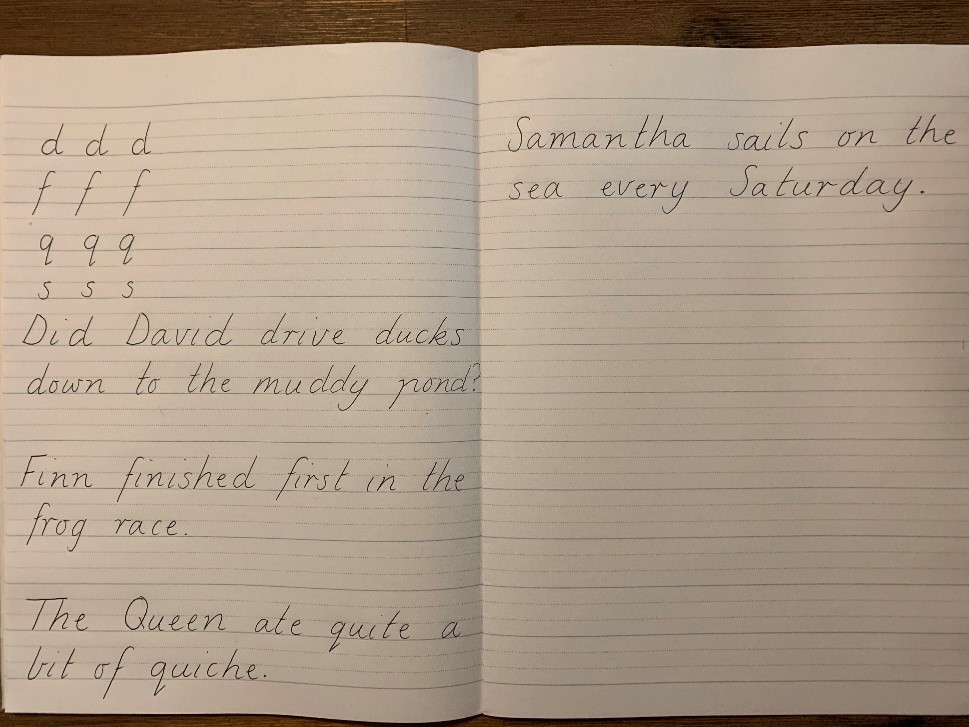 d d d
f f f
q q q
s s s
Did David drive ducks
down to the muddy pond?
Finn finished first in the
frog race.
The Queen ate quite a
bit of quiche.
Samantha sails on the
sea every Saturday.